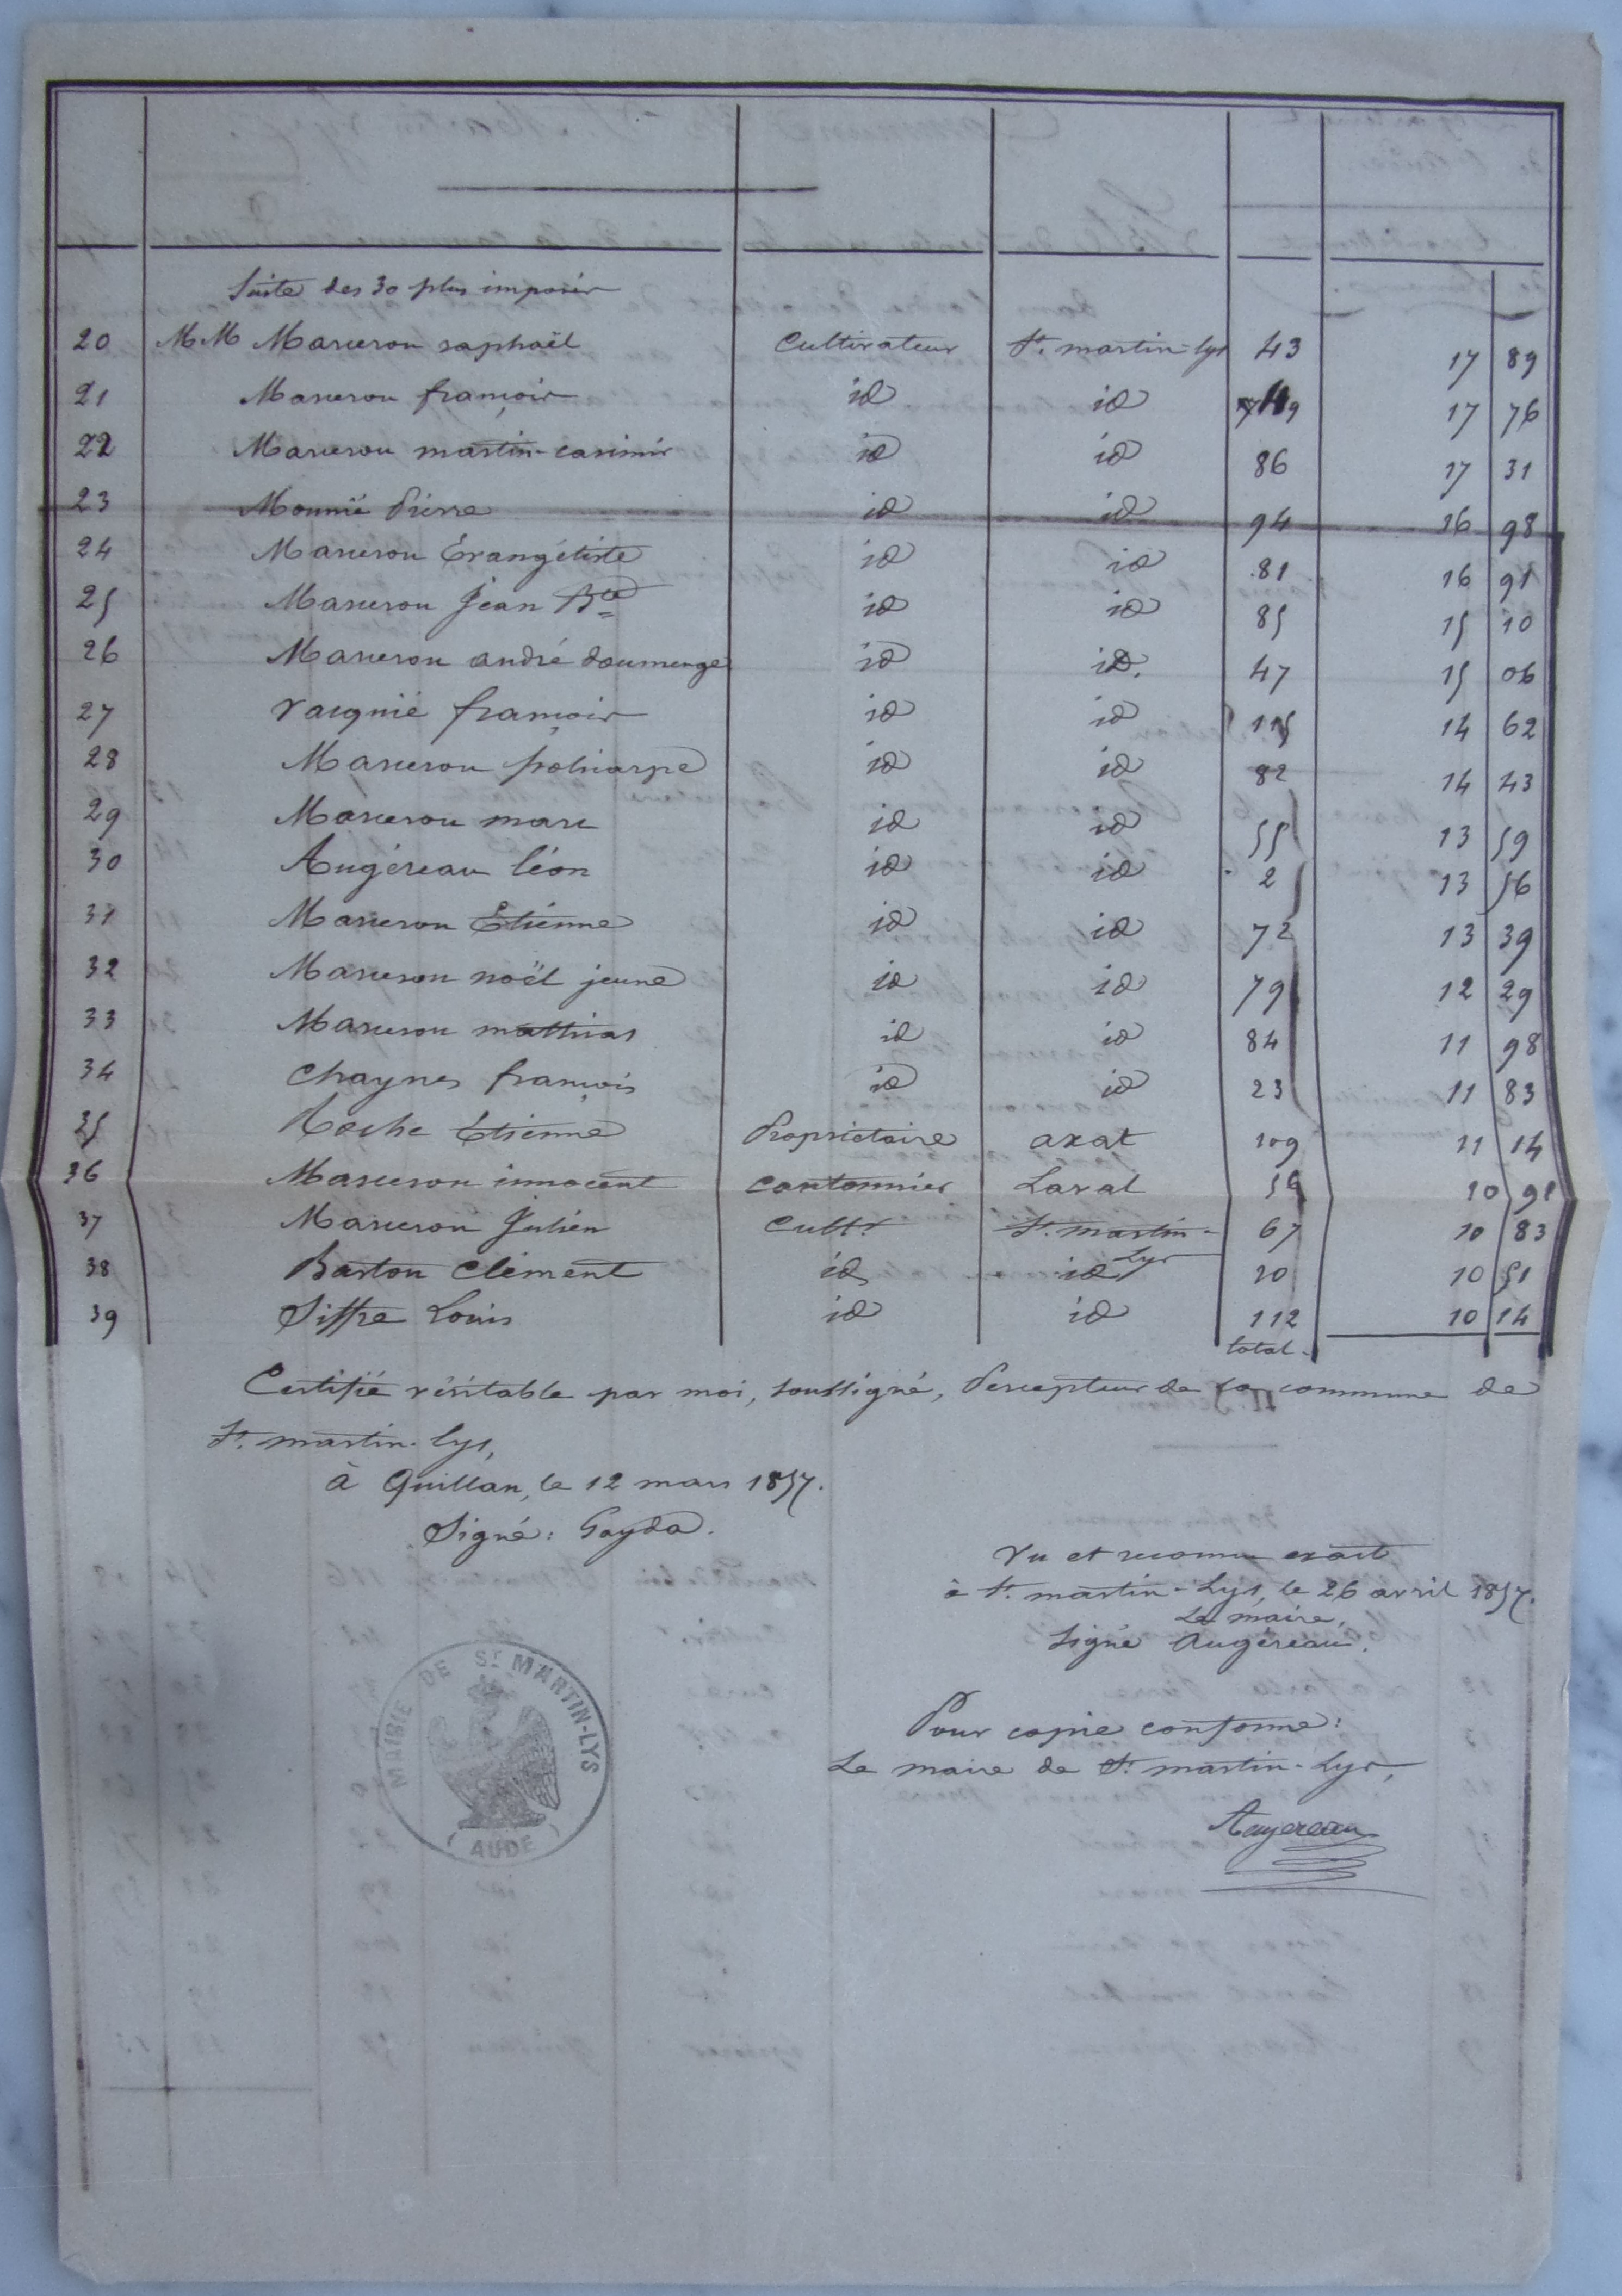 Suite des 30 plus imposés
20 MM Marcerou raphaël Cultivateur St. martin-lys 43 17 89
21 Marcerou françois id id 17 76
22 Marcerou martin-casimir id id 86 17 31
23 Mounié Pierre id id 94 16 98
24 Marcerou Évangéliste id id 81 16 91
25 Marcerou Jean Bte id id 85 15 10
26 Marcerou andré doumenge id id. 47 15 06
27 Vaignié françois id id 115 14 62
28 Marcerou policarpe id id 82 14 43
29 Marcerou marc id id 55 13 59
30 Augéreau léon id id 2 13 56
31 Marcerou Etienne id id 72 13 39
32 Marcerou noël jeune id id 79 12 29
33 Marcerou mathias id id 84 11 98
34 Chaynes françois id id 23 11 83
35 Roche Etienne Propriétaire axat 109 11 14
36 Marcerou innocent cantonnier Laval 10 91
37 Marcerou Julien Cultr. St. martin-Lys 67 10 83
38 Barton Clément id id 10 51
39 Siffre Louis id id 112 10 14
total.
Certifié véritable par moi, soussigné, Percepteur de la commune de
St. martin-lys,
à Quillan, le 12 mars 1857.
Signé: Gayda.
Vu et reconnu exact
à St. martin-Lys, le 26 avril 1857.
Le maire,
Signé Augéreau.
Pour copie conforme:
Le maire de St. martin-Lys,
Augereau
MAIRIE DE ST MARTIN-LYS
(AUDE)